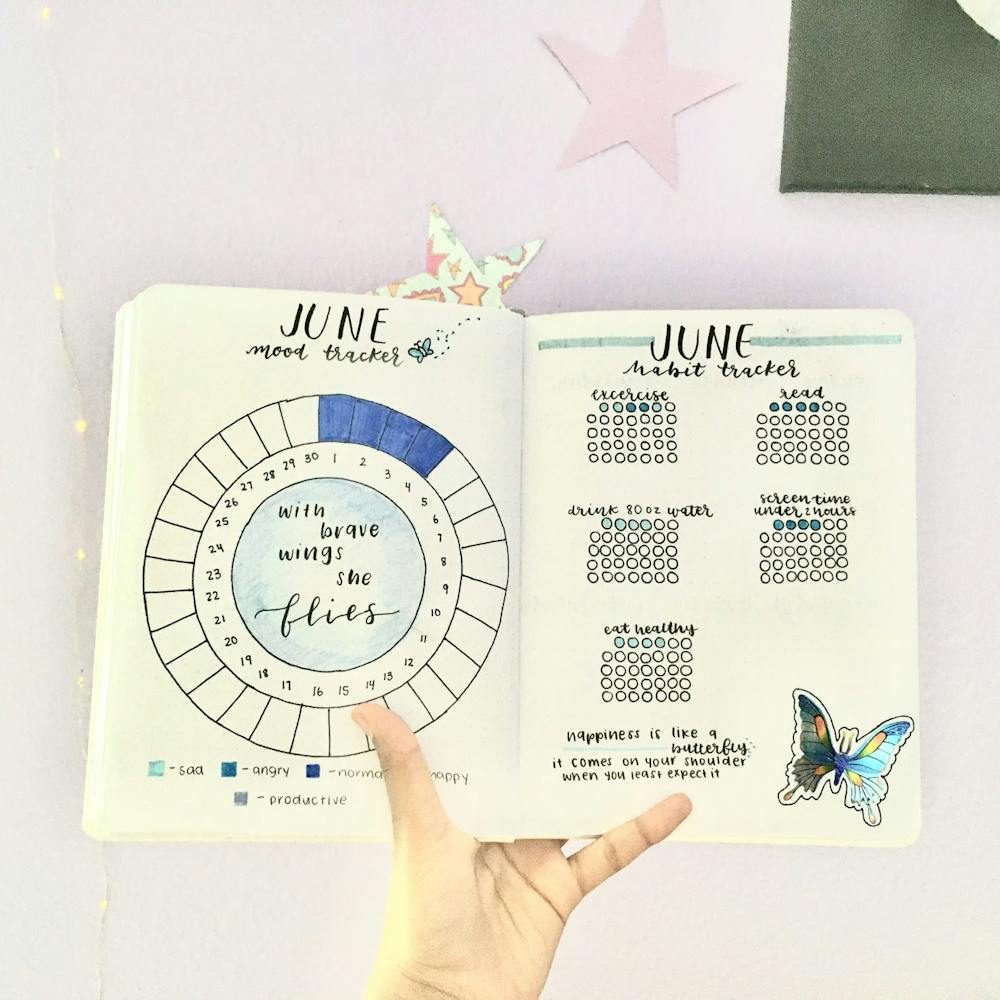 JUNE
mood tracker
1 2 3 4 5 6 7 8 9 10 11 12 13 14 15 16 17 18 19 20 21 22 23 24 25 26 27 28 29 30
with
brave
wings
she
flies
- sad - angry - norma happy
- productive
JUNE
habit tracker
excercise read
drink 80 oz water
screen time
under 2 hours
eat healthy
happiness is like a
butterfly
it comes on your shoulder
when you least expect it